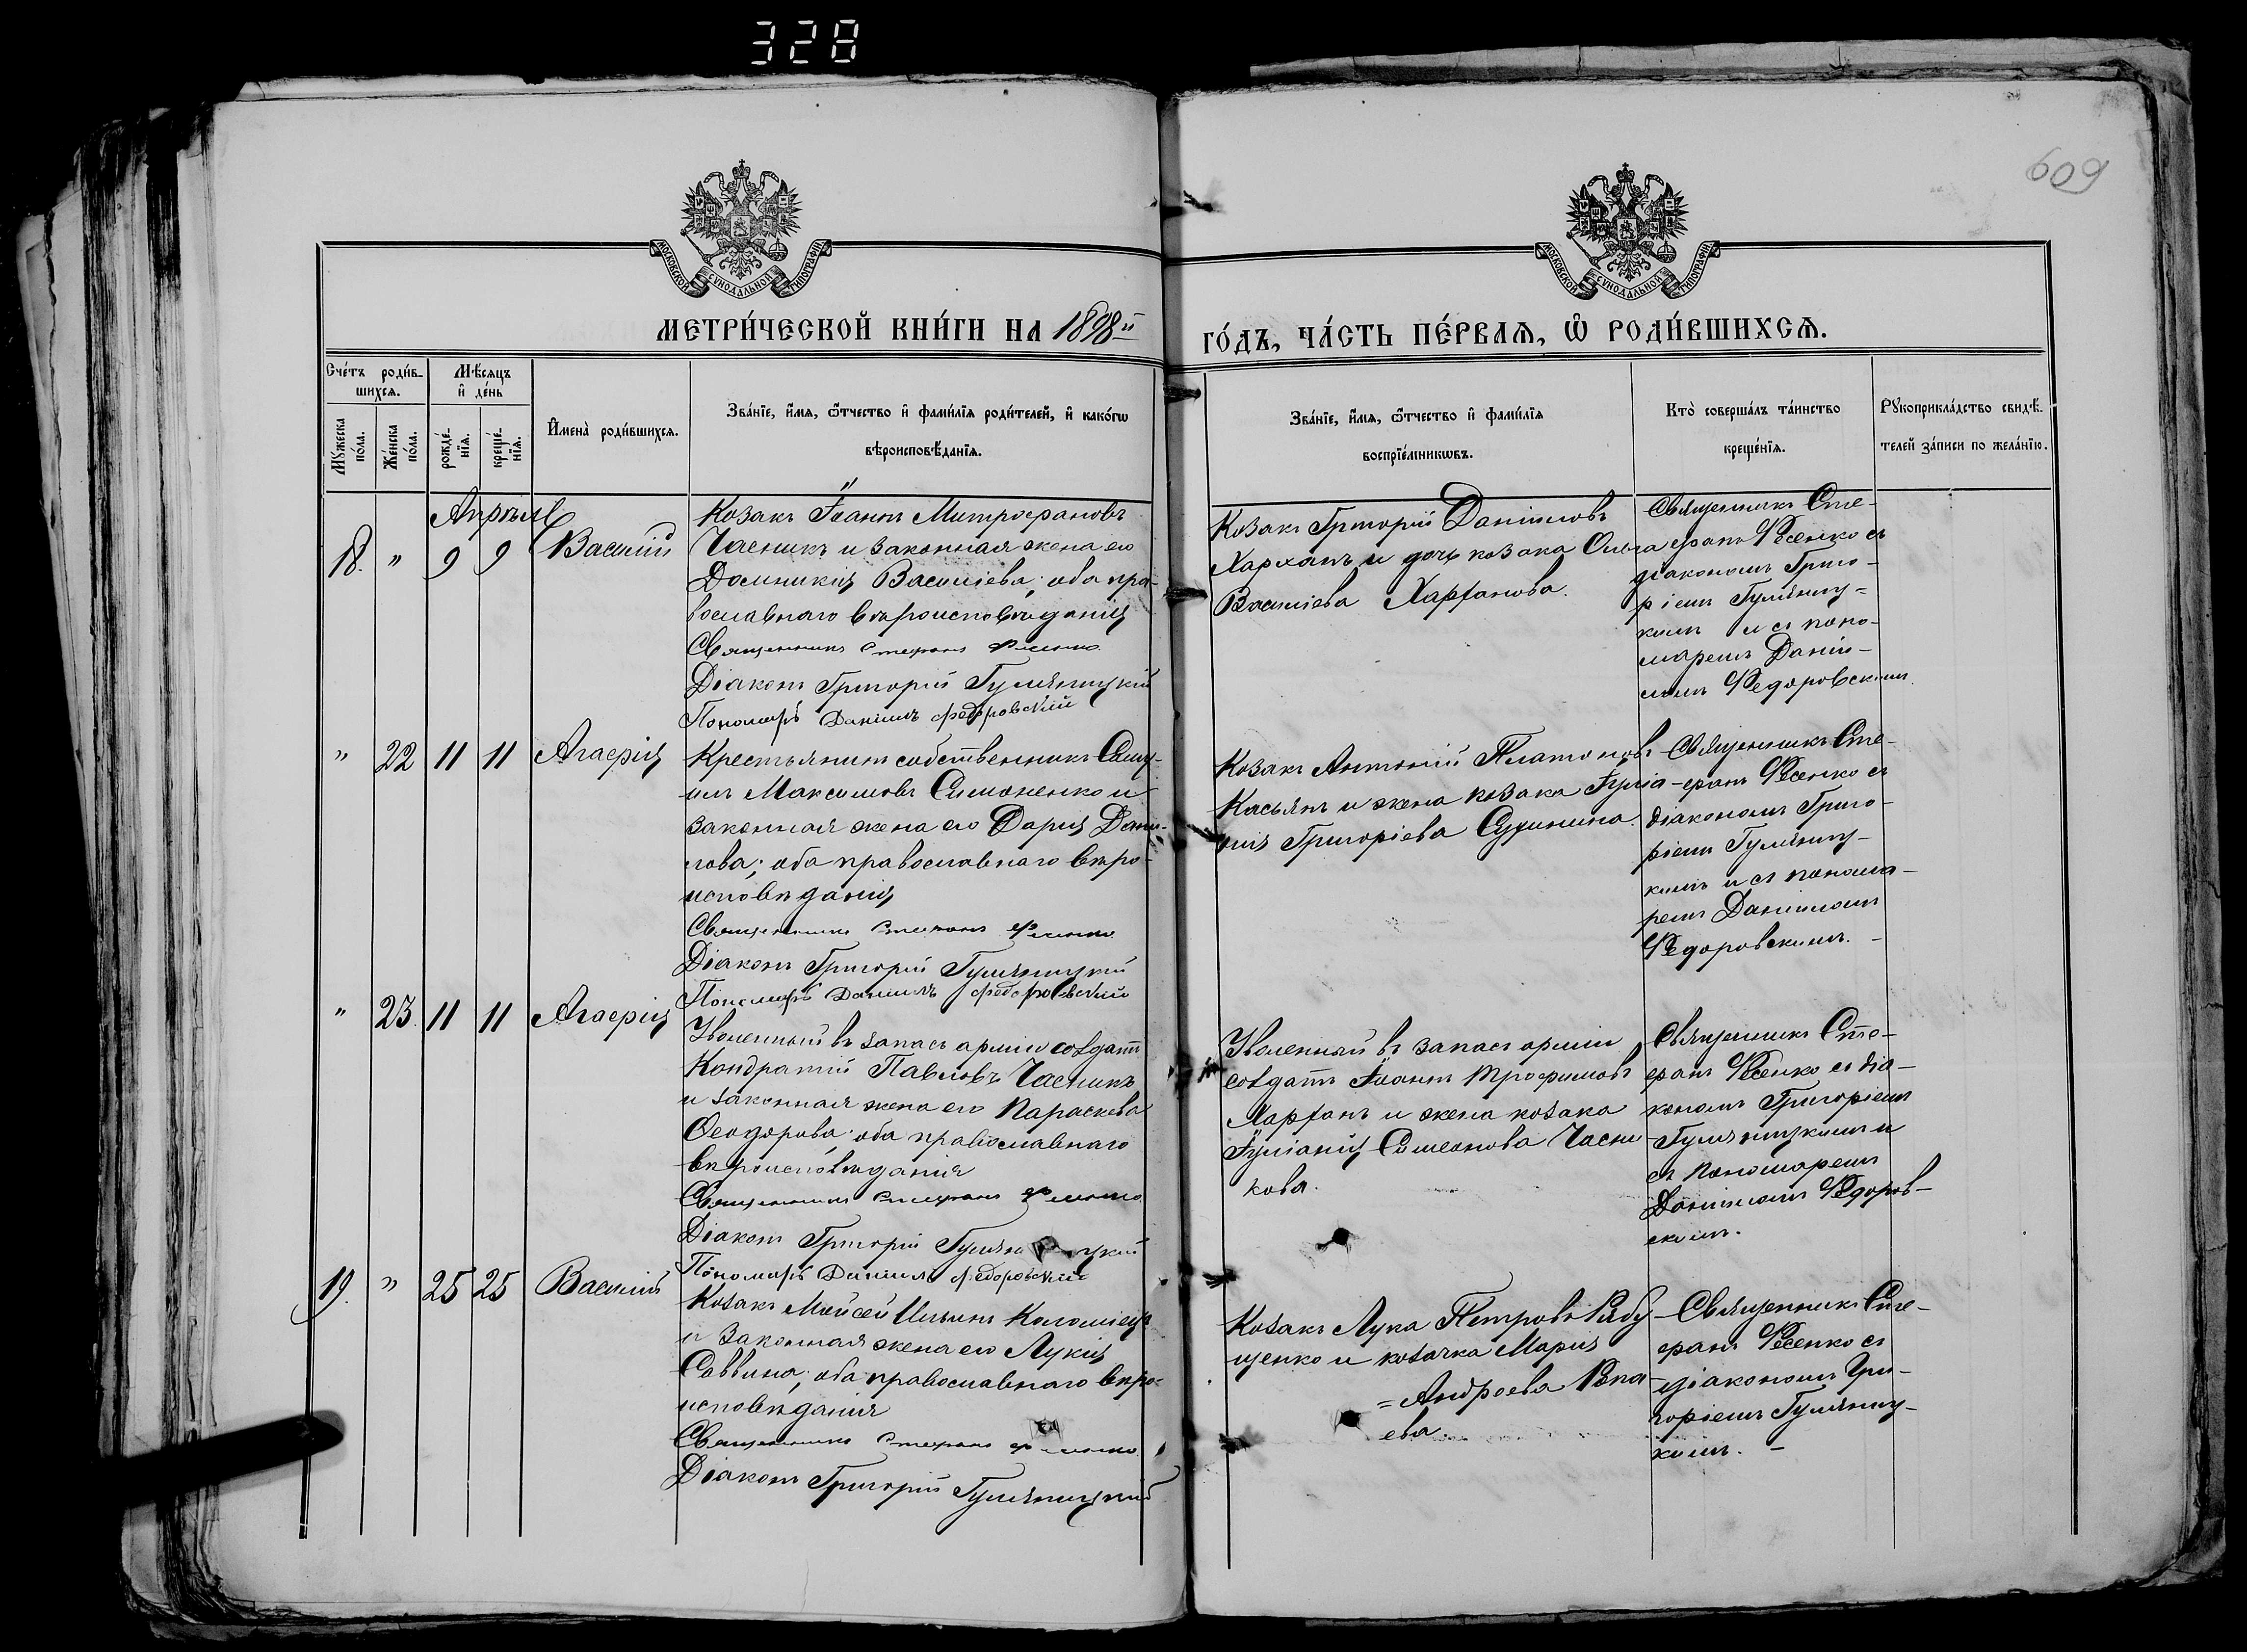 328
609
МОСКОВСКОЙ СѴНОДАЛЬНОЙ ТИПОГРАФІИ
МОСКОВСКОЙ СѴНОДАЛЬНОЙ ТИПОГРАФІИ
МЕТРИ́ЧЕСКОЙ КНИ́ГИ НА 1898й
ГО́ДЪ, ЧА́СТЬ ПЕ́РВАѦ, Ѡ҆ РОДИ́ВШИХСѦ.
Сче́тъ роди́в-
шихсѧ.
Мѣ́сѧцъ
и҆ де́нь
Мꙋ́жеска
по́ла.
Же́нска
по́ла.
рожде́-
нїѧ.
креще́-
нїѧ.
И҆мена̀ роди́вшихсѧ.
Зва́нїе, и҆́мѧ, ѻ҆́тчество и҆ фами́лїѧ роди́телей, и҆ како́гѡ
вѣроисповѣ́данїѧ.
Зва́нїе, и҆́мѧ, ѻ҆́тчество и҆ фами́лїѧ
воспрїе́мникѡвъ.
Кто̀ соверша́лъ та́инство
креще́нїѧ.
Рꙋкоприкла́дство свидѣ́-
телей за́писи по жела́нїю.
Апрѣль
18. " 9 9 Василій
Козакъ Іоаннъ Митрофановъ
Часникъ и законная жена его
Домникія Василіева; оба пра-
вославнаго вѣроисповѣданія
Священникъ Стефанъ Фесенко
Діаконъ Григорій Гуляницкій
Пономарь Даніилъ Федоровскій
Козакъ Григорій Даніиловъ
Харханъ и дочь козака Ольга
Василіева Харханова.
Священникъ Сте-
фанъ Фесенко съ
діакономъ Григо-
ріемъ Гуляниц-
кимъ и съ поно-
маремъ Даніи-
ломъ Федоровскимъ.
" 22 11 11 Агафія
Крестьянинъ собственникъ Саму-
илъ Максимовъ Симоненко и
законная жена его Дарія Дани-
лова; оба православнаго вѣро-
исповѣданія
Священникъ Стефанъ Фесенко
Діаконъ Григорій Гуляницкій
Пономарь Даніилъ Федоровскій
Козакъ Антоній Платоновъ
Касьянъ и жена козака Іуліа-
нія Григоріева
Священникъ Сте-
фанъ Фесенко съ
діакономъ Григо-
ріемъ Гуляниц-
кимъ и съ понома-
ремъ Даніиломъ
Федоровскимъ. -
" 23. 11 11 Агафія
Уволенный въ запасъ арміи солдатъ
Кондратій Павловъ Часникъ
и законная жена его Параскева
Ѳеодорова; оба православнаго
вѣроисповѣданія
Священникъ Стефанъ Фесенко
Діаконъ Григорій Гуляницкій
Пономарь Даніилъ Федоровскій
Уволенный въ запасъ арміи
солдатъ Іоаннъ Трофимовъ
Харханъ и жена козака
Іуліанія Симеонова Часни-
кова.
Священникъ Сте-
фанъ Фесенко съ діа-
кономъ Григоріемъ
Гуляницкимъ и
съ пономаремъ
Даніиломъ Федоров-
скимъ.
19. " 25 25 Василій
Козакъ Моисей Ильинъ Коломіецъ
и законная жена его Лукія
Саввина; оба православнаго вѣро-
исповѣданія
Священникъ Стефанъ Фесенко
Діаконъ Григорій Гуляницкій
Козакъ Лука Петровъ Рябу-
щенко и козачка Марія
Андреева
Священникъ Сте-
фанъ Фесенко съ
діакономъ Гри-
горіемъ Гуляниц-
кимъ. -